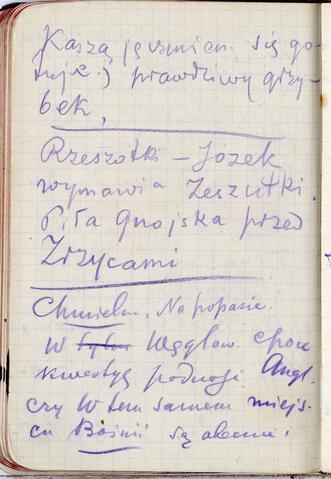 Kaszą jęczmien. się go-
tuje :) prawdziwy grzy-
bek,
Rzeszotki – Józek
wymawia Zeszutki.
Piła Gnojska przed
Zrzycami
Chmieln. Na popasie.
W Węgłow.
kwestyę podnosi Angl.
czy W tem samem miejs-
cu Bośnii są obecnie!